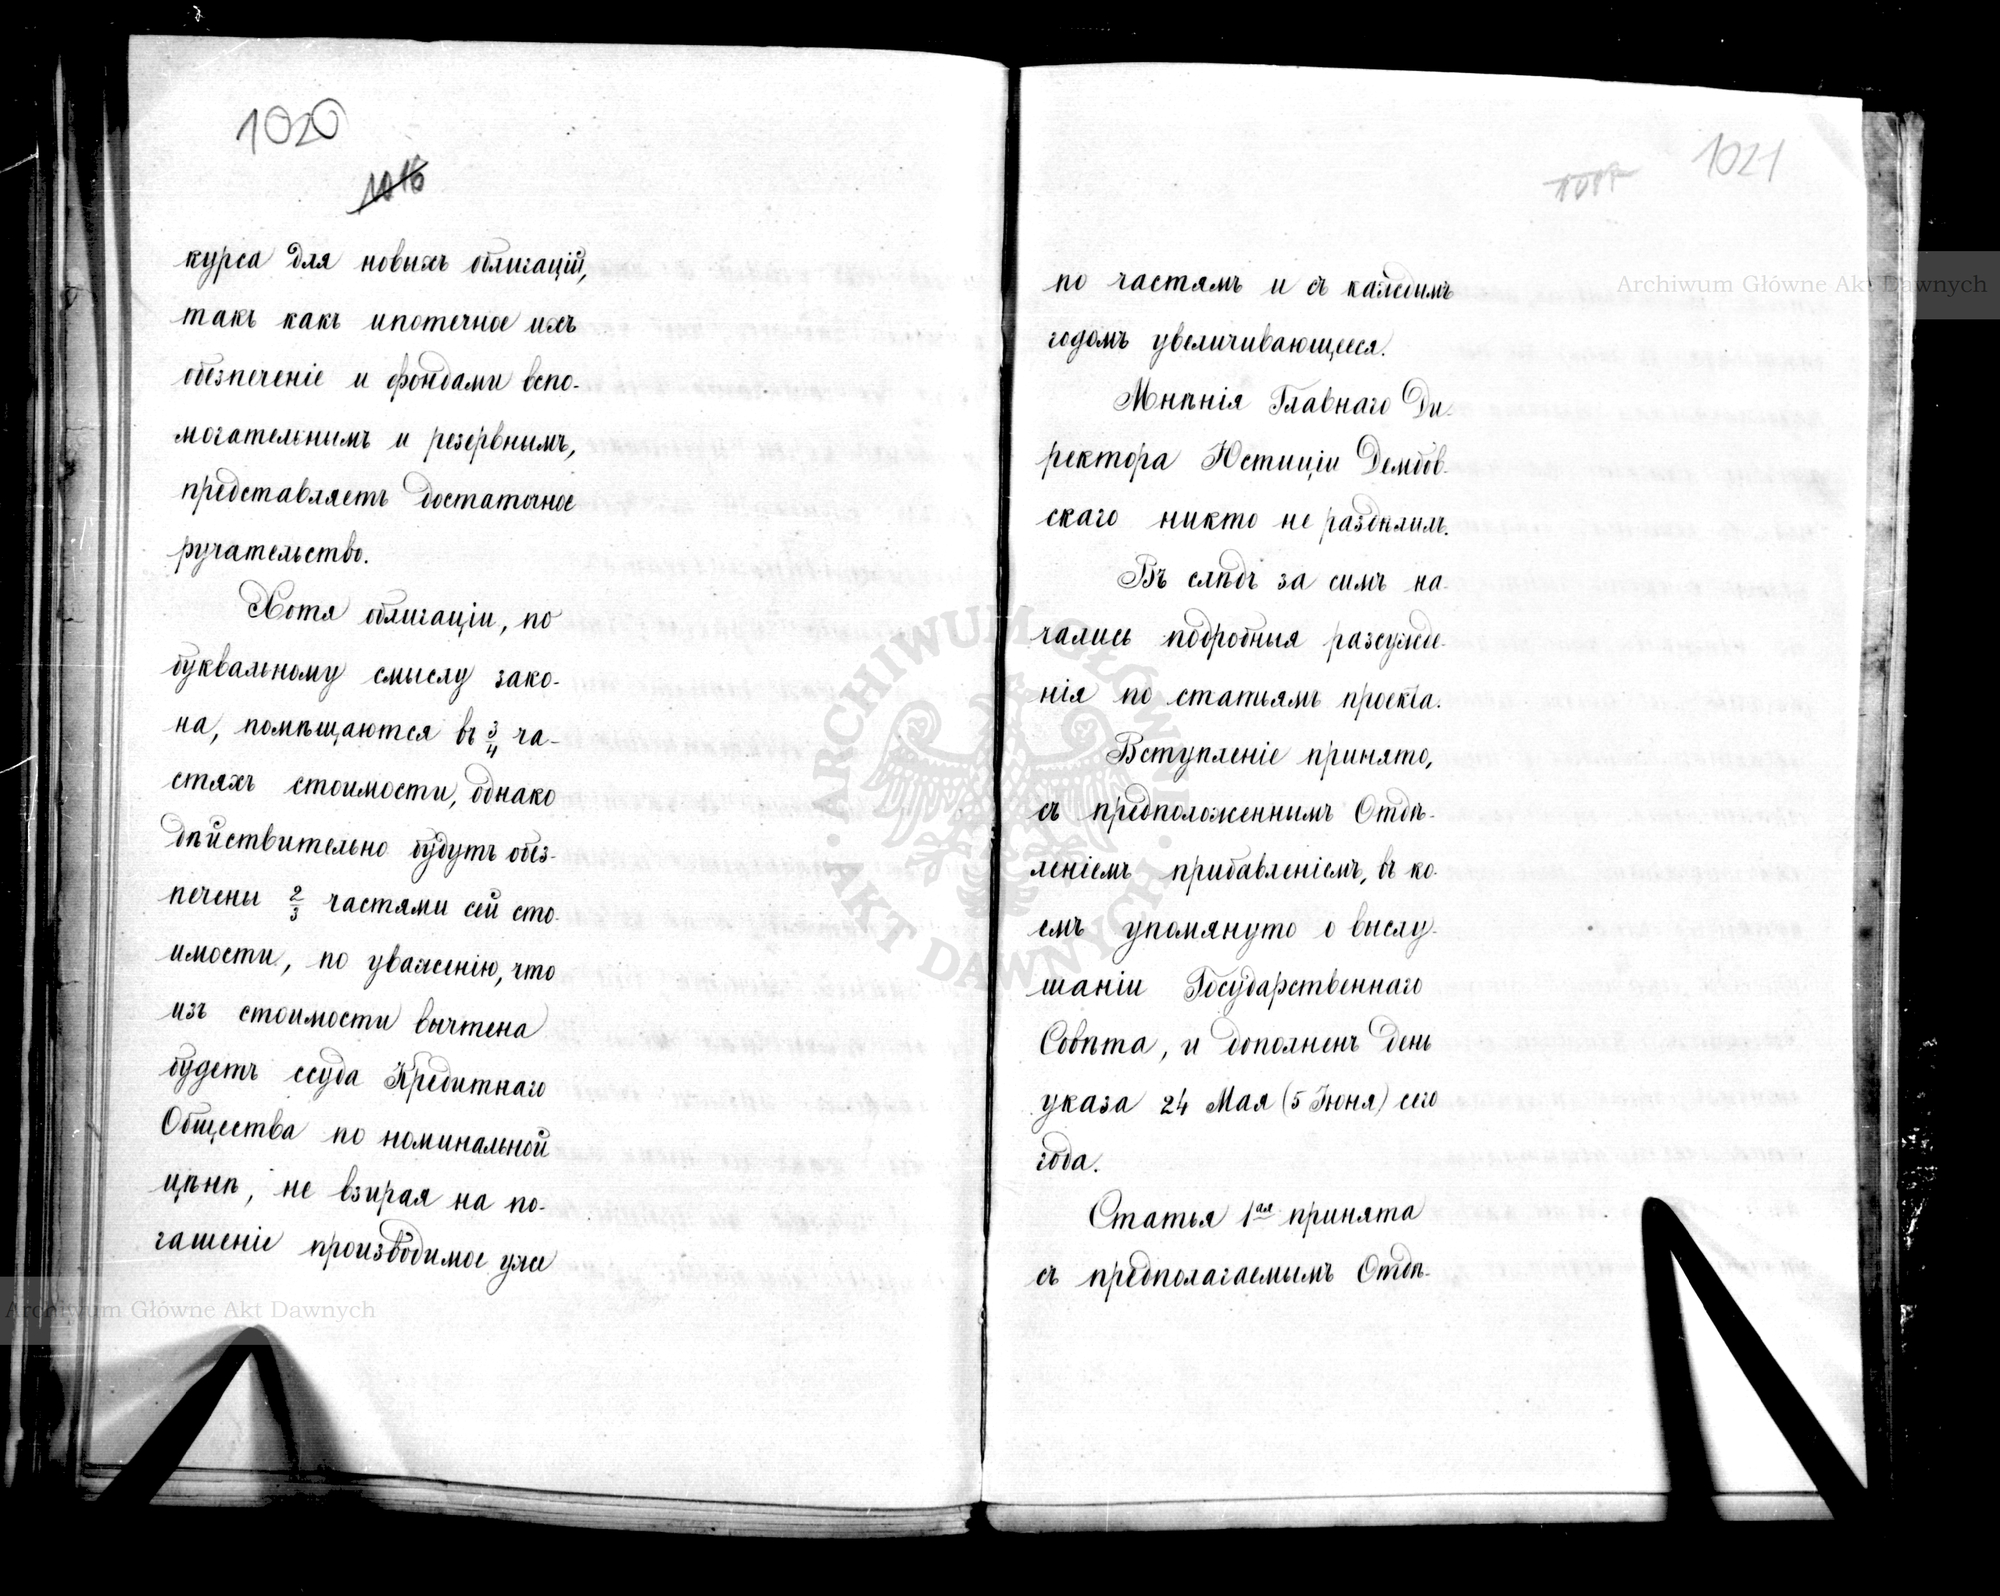 1020
1016
курса для новыхъ облигацій,
такъ какъ ипотечное ихъ
обезпеченіе и фондами вспо-
могательнымъ и резервнымъ,
представляетъ достаточное
ручательство.
Хотя облигаціи, по
буквальному смыслу зако-
на, помѣщаются въ 3/4 ча-
стяхъ стоимости, однако
дѣйствительно будутъ обез-
печены 2/3 частями сей сто-
имости, по уваженію, что
изъ стоимости вычтена
будетъ ссуда Кредитнаго
Общества по номинальной
цѣнѣ, не взирая на по-
гашеніе производимое уже
1021
1017
по частямъ и съ каждымъ
годомъ увеличивающееся.
Мнѣнія Главнаго Ди-
ректора Юстиціи Дембов-
скаго никто не раздѣлилъ.
Въ слѣдъ за симъ на-
чались подробныя разсужде-
нія по статьямъ проекта.
Вступленіе принято,
съ предположеннымъ Отдѣ-
леніемъ прибавленіемъ, въ ко-
емъ упомянуто о выслу-
шаніи Государственнаго
Совѣта, и дополненъ день
указа 24 Мая (5 Іюня) сего
года.
Статья 1ая принята
съ предполагаемымъ Отдѣ-
Archiwum Główne Akt Dawnych
Archiwum Główne Akt Dawnych
ARCHIWUM GŁÓWNE · AKT DAWNYCH ·